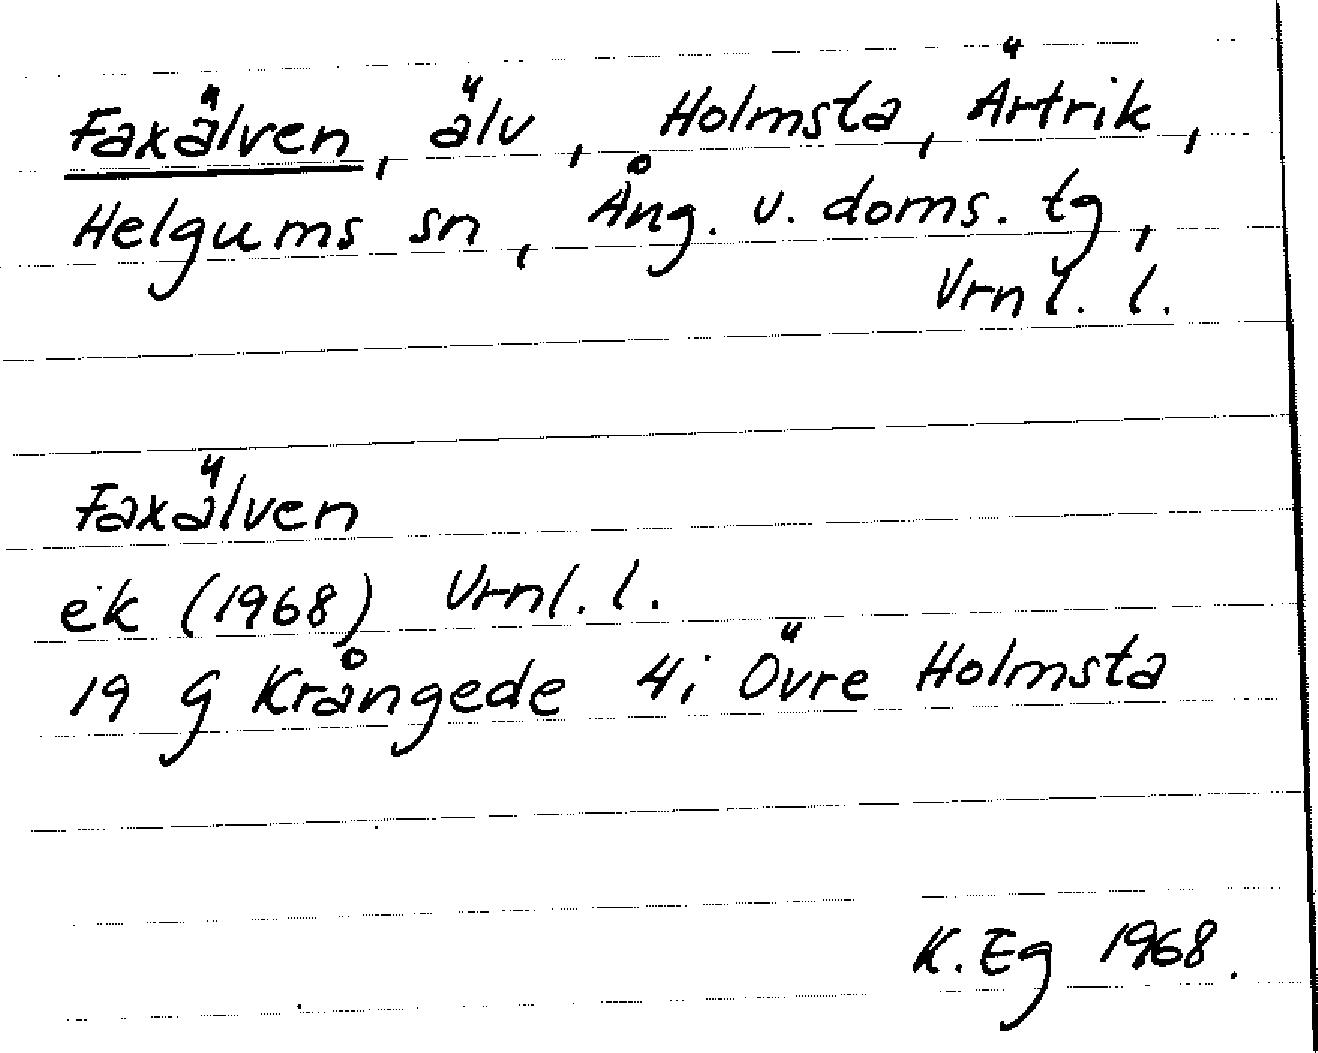 Faxälven, älv, Holmsta, Ärtrik,
Helgums sn, Ång. v. doms. tg,
Vrnl. l.
Faxälven
ek (1968) Vrnl. l.
19 G Krångede 4i Övre Holmsta
K. Eg 1968.